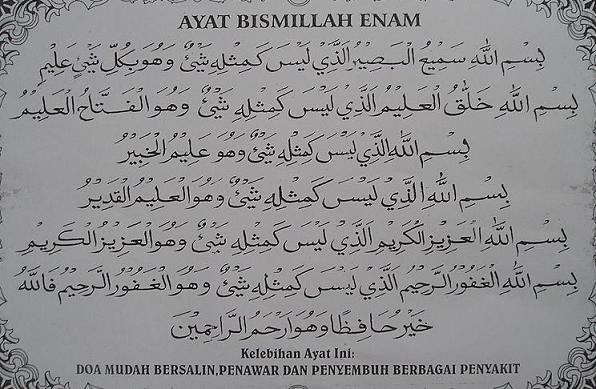 AYAT BISMILLAH ENAM
بِسْمِ اللهِ سَمِيْعُ الْبَصِيْرُ الَّذِيْ لَيْسَ كَمِثْلِهِ شَيْئٌ وَهُوَ بِكُلِّ شَيْئٍ عَلِيْمٌ
بِسْمِ اللهِ خَلَّاقُ الْعَلِيْمُ الَّذِيْ لَيْسَ كَمِثْلِهِ شَيْئٌ وَهُوَ الْفَتَّاحُ الْعَلِيْمُ
بِسْمِ اللهِ الَّذِيْ لَيْسَ كَمِثْلِهِ شَيْئٌ وَهُوَ عَلِيْمُ الْخَبِيْرُ
بِسْمِ اللهِ الَّذِيْ لَيْسَ كَمِثْلِهِ شَيْئٌ وَهُوَ الْعَلِيْمُ الْقَدِيْرُ
بِسْمِ اللهِ الْعَزِيْزِ الْكَرِيْمِ الَّذِيْ لَيْسَ كَمِثْلِهِ شَيْئٌ وَهُوَ الْعَزِيْزُ الْكَرِيْمِ
بِسْمِ اللهِ الْغَفُوْرُ الرَّحِيْمُ الَّذِيْ لَيْسَ كَمِثْلِهِ شَيْئٌ وَهُوَ الْغَفُوْرُ الرَّحِيْمُ فَاللهُ
خَيْرٌ حَافِظًا وَهُوَ اَرْحَمُ الرَّاحِمِيْنَ
Kelebihan Ayat Ini:
DOA MUDAH BERSALIN,PENAWAR DAN PENYEMBUH BERBAGAI PENYAKIT